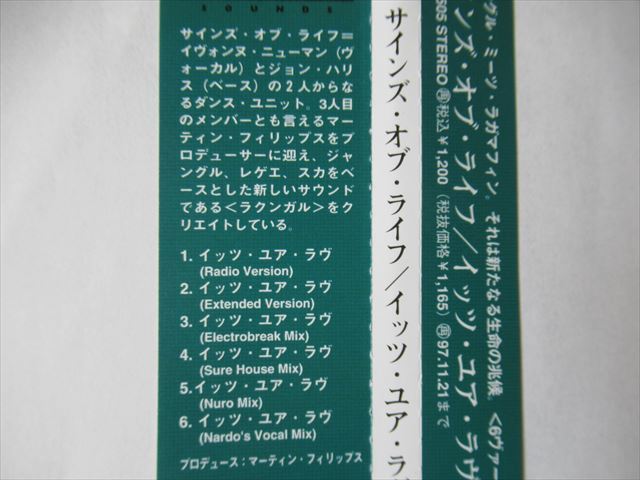 SOUNDS
サインズ・オブ・ライフ＝
イヴォンヌ・ニューマン（ヴ
ォーカル）とジョン・ハリ
ス（ベース）の2人からな
るダンス・ユニット。3人目
のメンバーとも言えるマー
ティン・フィリップスをプ
ロデューサーに迎え、ジャ
ングル、レゲエ、スカをベ
ースとした新しいサウンド
である＜ラクンガル＞をク
リエイトしている。
1. イッツ・ユア・ラヴ
(Radio Version)
2. イッツ・ユア・ラヴ
(Extended Version)
3. イッツ・ユア・ラヴ
(Electrobreak Mix)
4. イッツ・ユア・ラヴ
(Sure House Mix)
5.イッツ・ユア・ラヴ
(Nuro Mix)
6. イッツ・ユア・ラヴ
(Nardo's Vocal Mix)
プロデュース：マーティン・フィリップス
サインズ・オブ・ライフ／イッツ・ユア・ラ
グル・ミーツ・ラガマフィン。それは新たなる生命の兆候。＜6ヴァー
ンズ・オブ・ライフ／イッツ・ユア・ラヴ
605 STEREO ㊖税込￥1,200（税抜価格￥1,165）㊖97.11.21まで